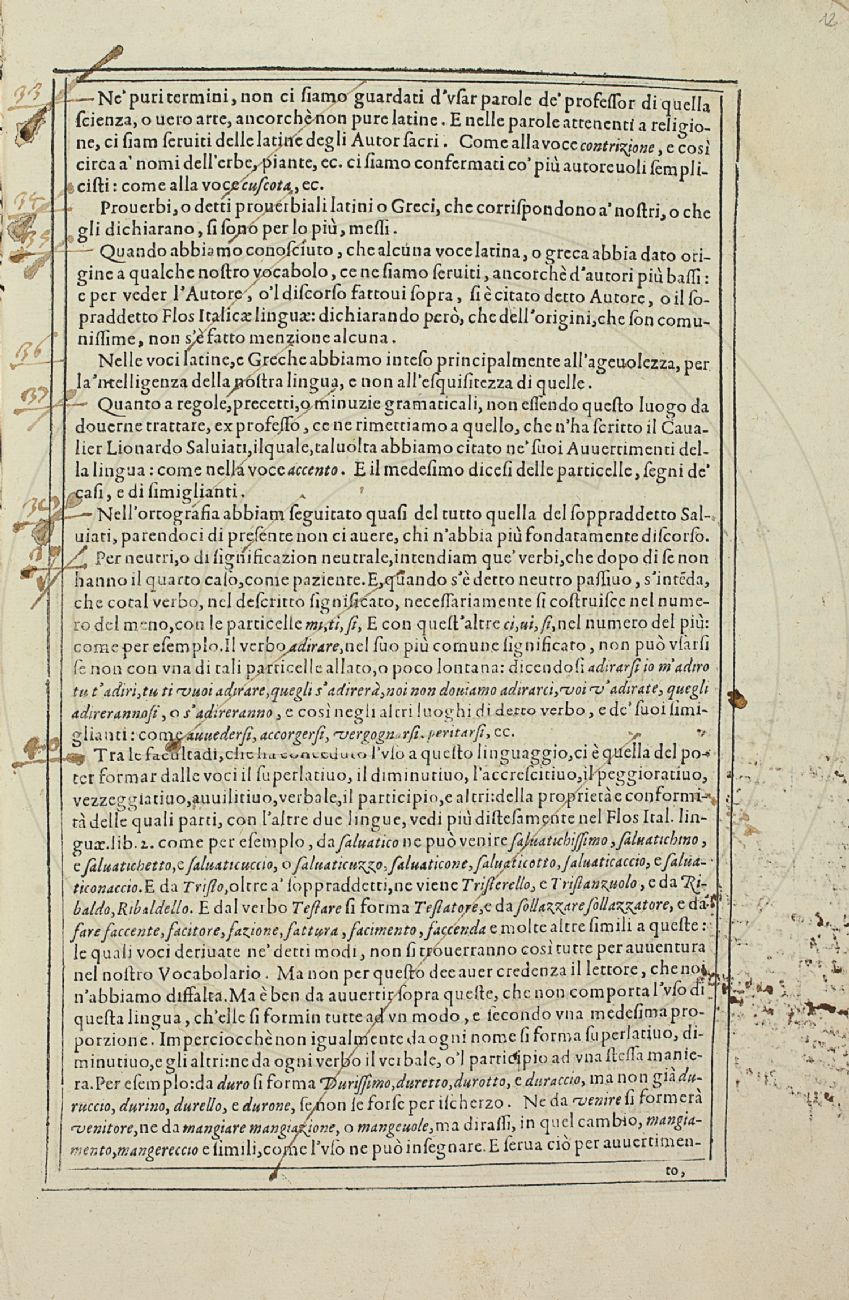 12
33
Ne' puri termini, non ci ſiamo guardati d'vſar parole de' profeſſor di quella
ſcienza, o uero arte, ancorchè non pure latine. E nelle parole attenenti a religio-
ne, ci ſiam ſeruiti delle latine degli Autor ſacri. Come alla voce contrizione, e così
circa a' nomi dell'erbe, piante, ec. ci ſiamo confermati co' più autoreuoli ſempli-
ciſti: come alla voce cuſcota, ec.
Prouerbi, o detti prouerbiali latini o Greci, che corriſpondono a' noſtri, o che
gli dichiarano, ſi ſono per lo più, meſſi.
35
Quando abbiamo conoſciuto, che alcuna voce latina, o greca abbia dato ori-
gine a qualche noſtro vocabolo, ce ne ſiamo ſeruiti, ancorchè d'autori più baſſi:
e per veder l'Autore, o'l diſcorſo fattoui ſopra, ſi è citato detto Autore, o il ſo-
praddetto Flos Italicæ linguæ: dichiarando però, che dell'origini, che ſon comu-
niſſime, non s'è fatto menzione alcuna.
36
Nelle voci latine, e Greche abbiamo inteſo principalmente all'ageuolezza, per
la'ntelligenza della noſtra lingua, e non all'eſquiſitezza di quelle.
37
Quanto a regole, precetti, o minuzie gramaticali, non eſſendo queſto luogo da
douerne trattare, ex profeſſo, ce ne rimettiamo a quello, che n'ha ſcritto il Caua-
lier Lionardo Saluiati, ilquale, taluolta abbiamo citato ne' ſuoi Auuertimenti del-
la lingua: come nella voce accento. E il medeſimo diceſi delle particelle, ſegni de'
caſi, e di ſimiglianti.
Nell'ortografia abbiam ſeguitato quaſi del tutto quella del ſoppraddetto Sal-
uiati, parendoci di preſente non ci auere, chi n'abbia più fondatamente diſcorſo.
Per neutri, o di ſignificazion neutrale, intendiam que' verbi, che dopo di ſe non
hanno il quarto caſo, come paziente. E, quando s'è detto neutro paſſiuo, s'intẽda,
che cotal verbo, nel deſcritto ſignificato, neceſſariamente ſi coſtruiſce nel nume-
ro del meno, con le particelle mi, ti, ſi, E con queſt'altre ci, ui, ſi, nel numero del più:
come per eſempio. Il verbo adirare, nel ſuo più comune ſignificato, non può vſarſi
ſe non con vna di tali particelle allato, o poco lontana: dicendoſi adirarſi io m'adiro
tu t'adiri, tu ti vuoi adirare, quegli s'adirerà, noi non douiamo adirarci, voi v'adirate, quegli
adirerannoſi, o s'adireranno, e così negli altri luoghi di detto verbo, e de' ſuoi ſimi-
glianti: come auuederſi, accorgerſi, vergognarſi, peritarſi, ec.
40
Tra le facultadi, che ha conceduto l'vſo a queſto linguaggio, ci è quella del po-
ter formar dalle voci il ſuperlatiuo, il diminutiuo, l'accreſcitiuo, il peggioratiuo,
vezzeggiatiuo, auuilitiuo, verbale, il participio, e altri: della proprietà e conformi-
tà delle quali parti, con l'altre due lingue, vedi più diſteſamente nel Flos Ital. lin-
guæ. lib. 2. come per eſempio, da ſaluatico ne può venire ſaluatichiſſimo, ſaluatichino,
e ſaluatichetto, e ſaluaticuccio, o ſaluaticuzzo, ſaluaticone, ſaluaticotto, ſaluaticaccio, e ſalua-
ticonaccio. E da Triſto, oltre a' ſoppraddetti, ne viene Triſterello, e Triſtanzuolo, e da Ri-
baldo, Ribaldello. E dal verbo Teſtare ſi forma Teſtatore, e da ſollazzare ſollazzatore, e da
fare faccente, facitore, fazione, fattura, facimento, faccenda e molte altre ſimili a queſte:
le quali voci deriuate ne' detti modi, non ſi trouerranno così tutte per auuentura
nel noſtro Vocabolario. Ma non per queſto dee auer credenza il lettore, che noi
n'abbiamo diffalta. Ma è ben da auuertir ſopra queſte, che non comporta l'vſo di
queſta lingua, ch'elle ſi formin tutte ad vn modo, e ſecondo vna medeſima pro-
porzione. Imperciocchè non igualmente da ogni nome ſi forma ſuperlatiuo, di-
minutiuo, e gli altri: ne da ogni verbo il verbale, o'l participio ad vna ſteſſa manie-
ra. Per eſempio: da duro ſi forma Duriſſimo, duretto, durotto, e duraccio, ma non già du-
ruccio, durino, durello, e durone, ſe non ſe forſe per iſcherzo. Ne da venire ſi formerà
venitore, ne da mangiare mangiazione, o mangeuole, ma diraſſi, in quel cambio, mangia-
mento, mangereccio e ſimili, come l'vſo ne può inſegnare. E ſerua ciò per auuertimen-
to,